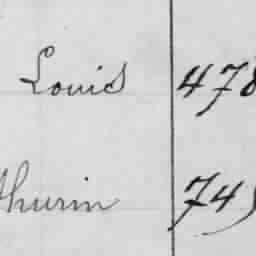 Louis 478
thurin 745